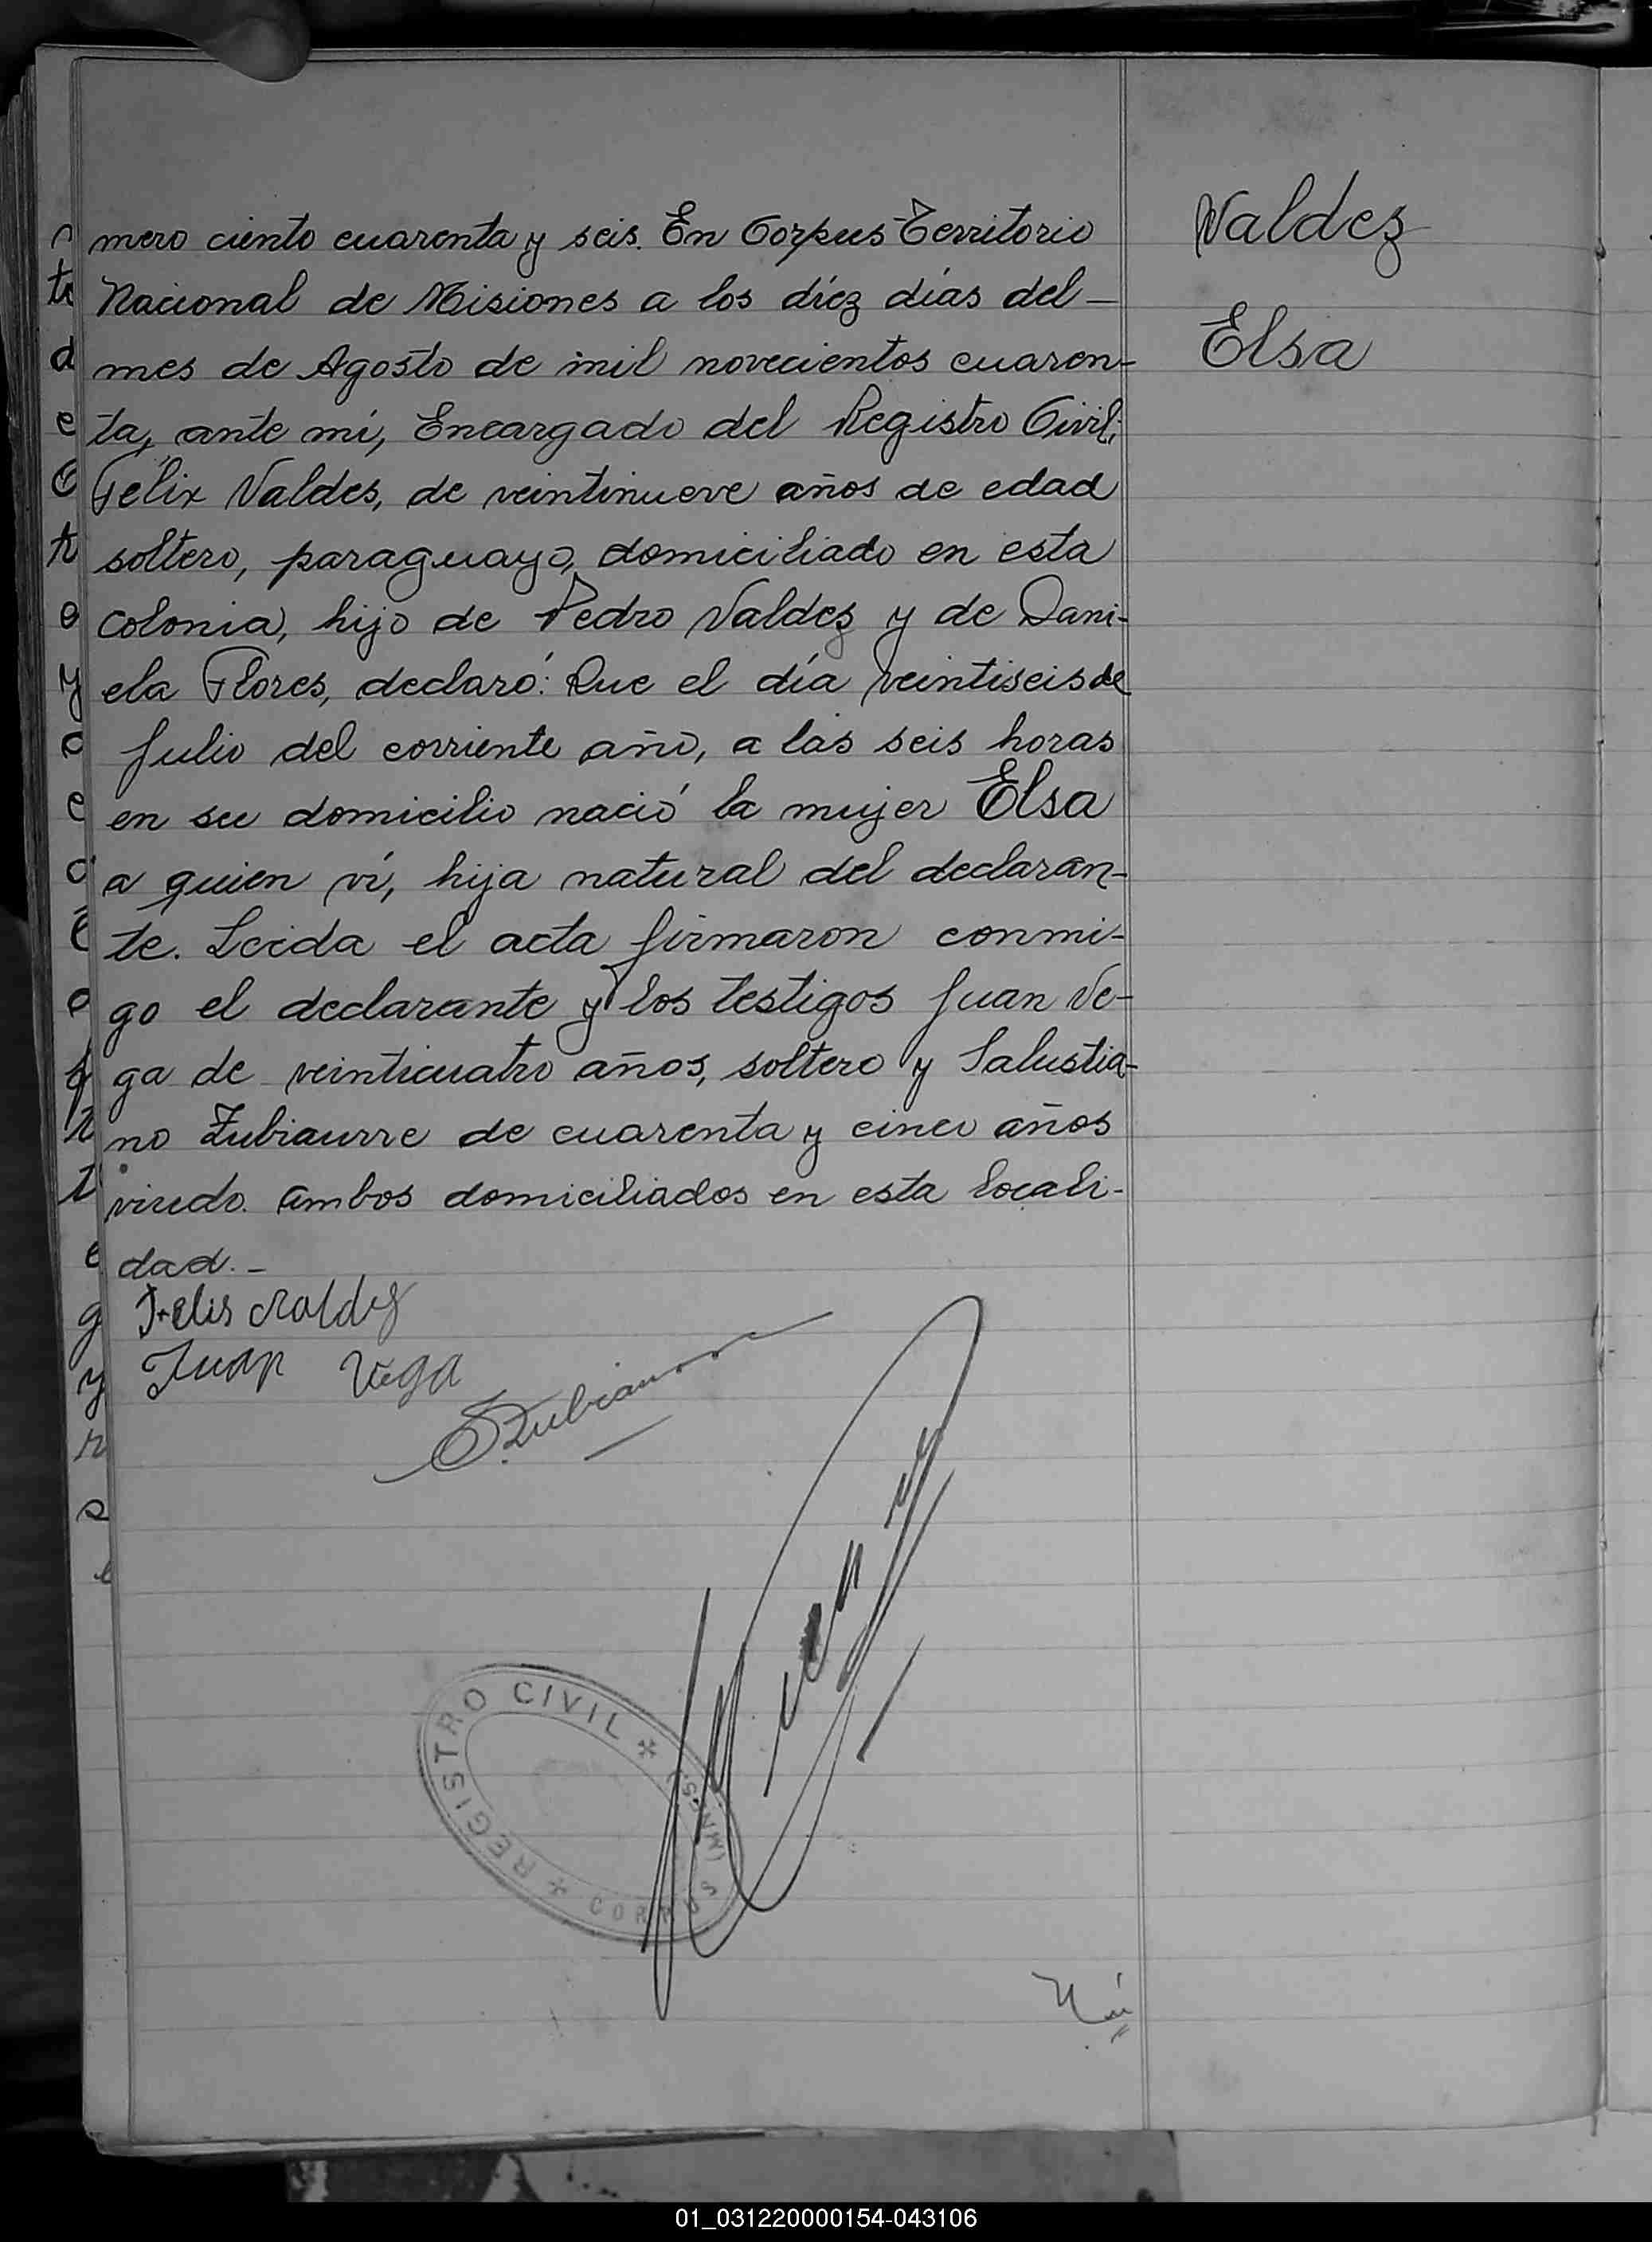 mero ciento cuarenta y seis. En Corpus Territorio
Nacional de Misiones a los diéz días del —
mes de Agosto de mil novecientos cuaren-
ta, ante mí, Encargado del Registro Civil;
Félix Valdes, de veintinueve años de edad
soltero, paraguayo, domiciliado en esta
colonia, hijo de Pedro Valdez y de Dani-
ela Flores, declaró: Que el día veintiseis de
Julio del corriente año, a las seis horas
en su domicilio nació la mujer Elsa
a quien ví, hija natural del declaran-
te. Leida el acta firmaron conmi-
go el declarante y los testigos Juan Ve-
ga de veinticuatro años, soltero y Salustia-
no Zubiaurre de cuarenta y cinco años
viudo. ambos domiciliados en esta locali-
dad. -
Felis Valdez
Juan Vega
S. Zubiaurre
REGISTRO CIVIL
CORPUS (MNES.)
Nú
Valdez
Elsa
01_031220000154-043106